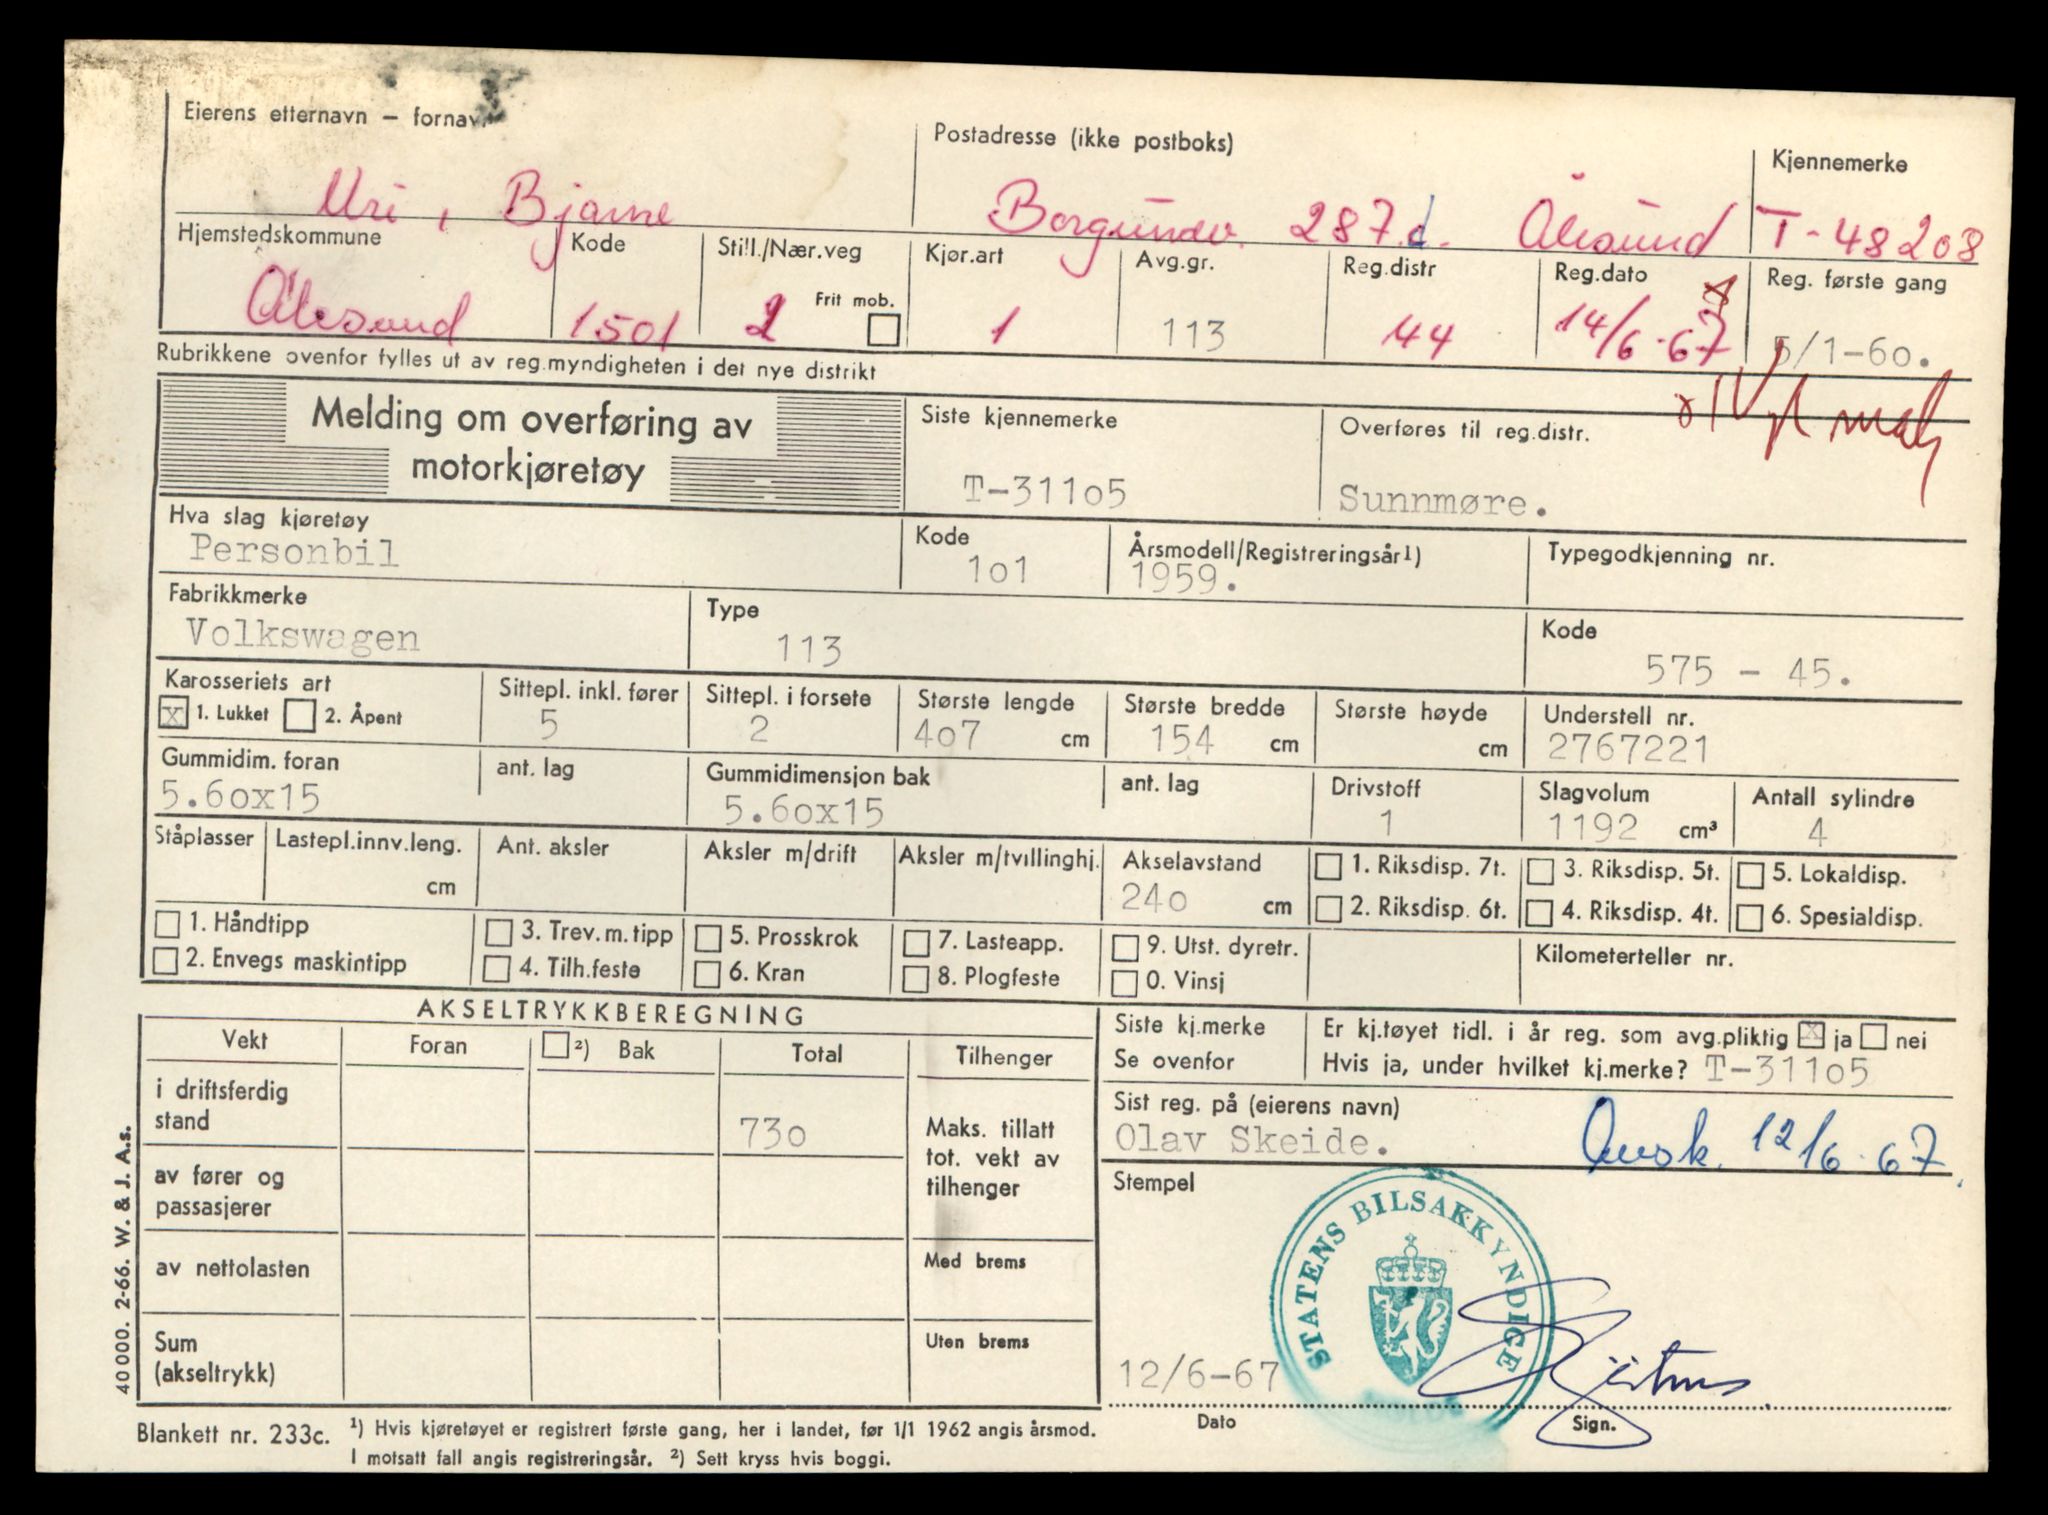 Eierens etternavn — fornavn
Postadresse (ikke postboks)
Kjennemerke
Uri, Bjarne
Borgundv. 287.d. Ålesund
T-48208
Hjemstedskommune
Kode
Still./Nær.veg
Kjør.art
Avg.gr.
Reg.distr
Reg.dato
Reg. første gang
Frit mob.
Ålesund
1501
2
1
113
44
14/6-67
5/1-60.
Rubrikkene ovenfor fylles ut av reg.myndigheten i det nye distrikt
Melding om overføring av
motorkjøretøy
Siste kjennemerke
Overføres til reg.distr.
T-31105
Sunnmøre.
Hva slag kjøretøy
Personbil
Kode
101
Årsmodell/Registreringsår1)
1959.
Typegodkjenning nr.
Fabrikkmerke
Volkswagen
Type
113
Kode
575 - 45.
Karosseriets art
x 1. Lukket 2. Åpent
Sittepl. inkl. fører
5
Sittepl. i forsete
2
Største lengde
407 cm
Største bredde
154 cm
Største høyde
cm
Understell nr.
2767221
Gummidim. foran
5.60x15
ant. lag
Gummidimensjon bak
5.60x15
ant. lag
Drivstoff
1
Slagvolum
1192 cm³
Antall sylindre
4
Ståplasser
Lastepl.innv.leng.
cm
Ant. aksler
Aksler m/drift
Aksler m/tvillinghj.
Akselavstand
240 cm
1. Riksdisp. 7t.
2. Riksdisp. 6t.
3. Riksdisp. 5t.
4. Riksdisp. 4t.
5. Lokaldisp.
6. Spesialdisp.
1. Håndtipp
2. Envegs maskintipp
3. Trev.m.tipp
4. Tilh.feste
5. Prosskrok
6. Kran
7. Lasteapp.
8. Plogfeste
9. Utst. dyretr.
0. Vinsj
Kilometerteller nr.
AKSELTRYKKBEREGNING
Vekt
Foran
2) Bak
Total
Tilhenger
i driftsferdig
stand
730
Maks. tillatt
tot. vekt av
tilhenger
av fører og
passasjerer
av nettolasten
Med brems
Sum
(akseltrykk)
Uten brems
Siste kj.merke
Se ovenfor
Er kj.tøyet tidl. i år reg. som avg.pliktig x ja nei
Hvis ja, under hvilket kj.merke? T-31105
Sist reg. på (eierens navn)
Olav Skeide.
12/6-67
Stempel
STATENS BILSAKKYNDIGE
12/6-67
Dato
Sign.
40 000. 2-66. W. & J. A.s.
Blankett nr. 233c.
1) Hvis kjøretøyet er registrert første gang, her i landet, før 1/1 1962 angis årsmod.
I motsatt fall angis registreringsår. 2) Sett kryss hvis boggi.